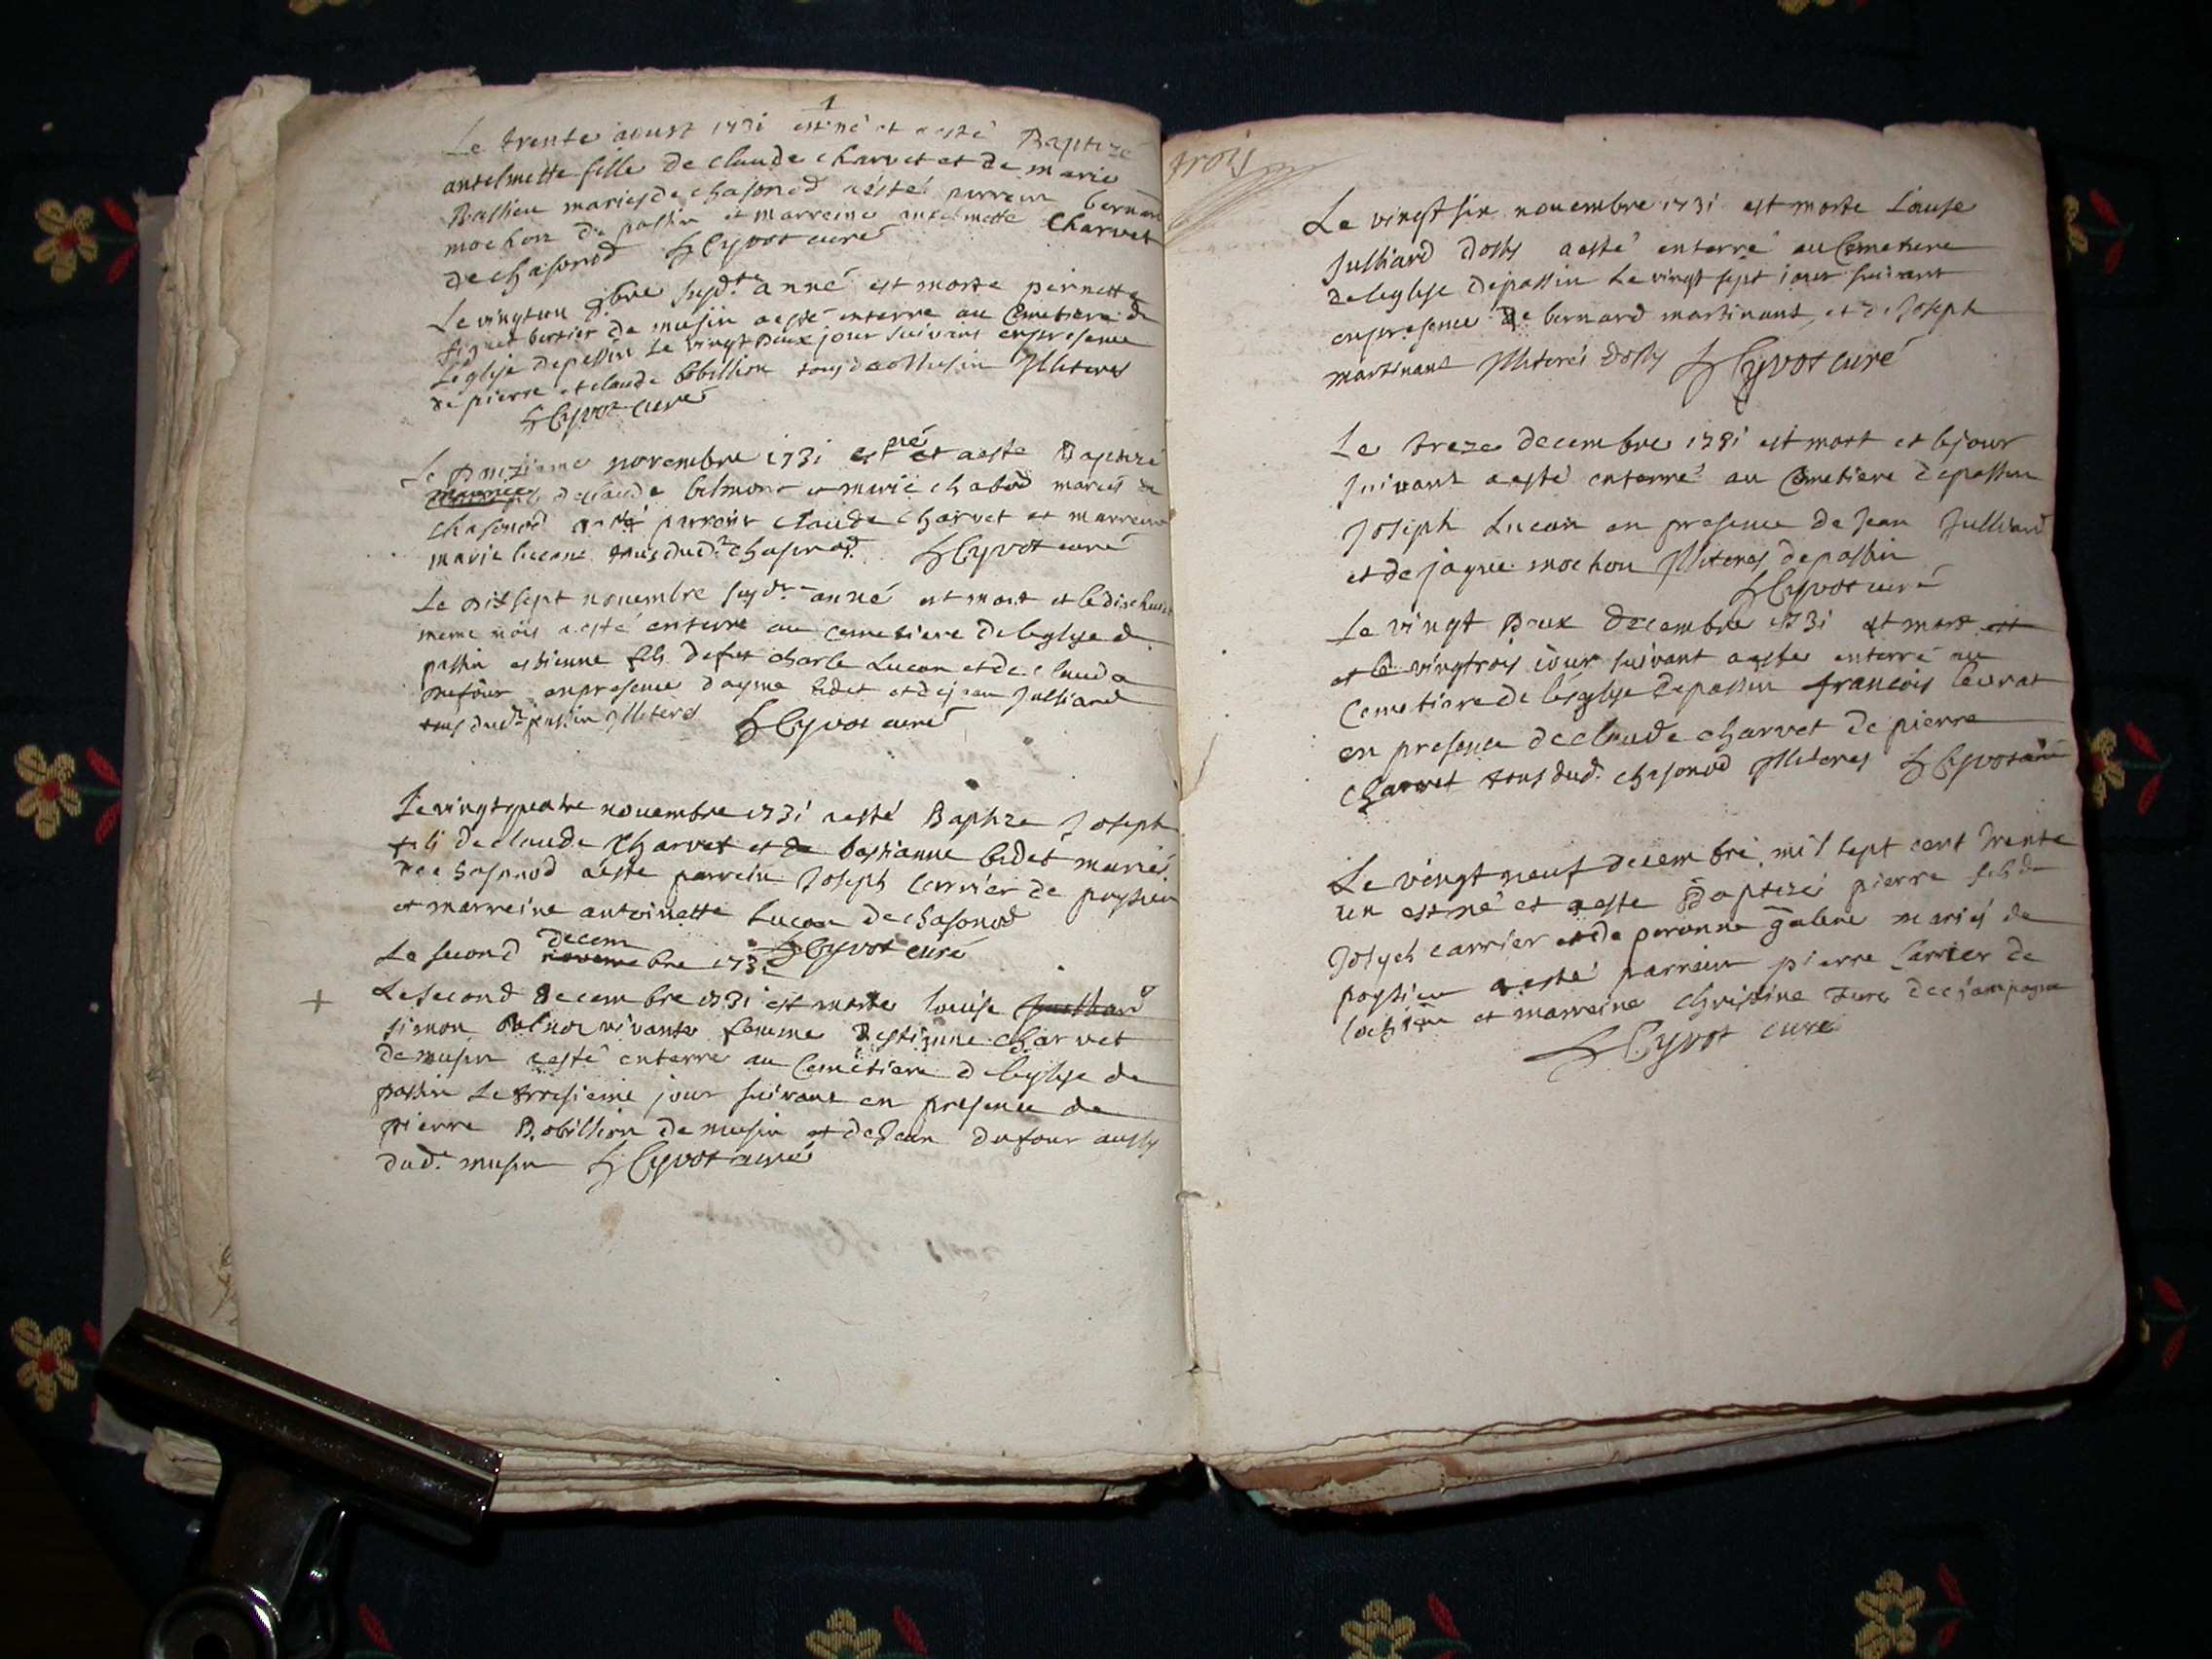 1
Le trente aoust 1731 est né et a esté Baptizé
antelmette fille de claude charvet et de marie
Bassieu mariés de chasonod a esté parrein bernard
mochon de passin et marreine antelmette Charvet
de chasonod Cyvot curé
Le vingtun 9bre susd.te anné est morte pernette
bertier de musin a esté enterre au Cemetiere de
Leglise de passin Le vingt deux jour suivant en presence
de pierre et claude bobillion tous de musin Illiteres
Cyvot curé
Le novembre 1731 est né et a esté Baptizé
de claude belmont et marie chabod mariés de
chasonod a esté parrein claude charvet et marreine
marie lucane tous dud.t chasonod Cyvot curé
Le dix sept novembre susd.te anné est mort et le dix huit
meme mois a esté enterre au cemetiere de leglise de
passin estienne fils de fut charle Lucan et de clauda
dufour en presence d'ayme bidet et de jean Julliard
tous dud.t passin Illiteres Cyvot curé
Le vingt quatre novembre 1731 a esté Baptize Joseph
fils de claude Charvet et de bastianne bidet mariés
de chasonod a esté parrein Joseph Carrier de poysieu
et marreine antoinette Lucan de chasonod
Cyvot curé
Le second decem
novembre 1731
+ Le second decembre 1731 est morte louise Julliard
simon vivante femme d'estienne charvet
de musin a esté enterre au Cemetiere de leglise de
passin Le troisieme jour suivant en presence de
pierre Bobillion de musin et de Jean dufour aussy
dud.t musin Cyvot curé
trois
Le vingt six novembre 1731 est morte Louise
Julliard dossy a esté enterré au Cemetiere
de leglise de passin Le vingt sept jour suivant
en presence de bernard martinant et de Joseph
martinant Illiterés dossy Cyvot curé
Le treze decembre 1731 est mort et le jour
suivant a esté enterré au Cemetiere de passin
Joseph Lucan en presence de Jean Julliard
et de jaque mochon Illiteres de passin
Cyvot curé
Le vingt deux decembre 1731 est mort est
et le vingtrois jour suivant a esté enterré au
Cemetiere de l'eglise de passin francois levrat
en presence de claude charvet de pierre
charvet tous dud.t chasonod Illiteres Cyvot curé
Le vingt neuf decembre mil sept cent trente
un est né et a esté Baptizé pierre fils de
Joseph carrier et de peronne galene mariés de
poysieu a esté parrein pierre Carrier de
lochieu et marreine christine de champagne
Cyvot curé